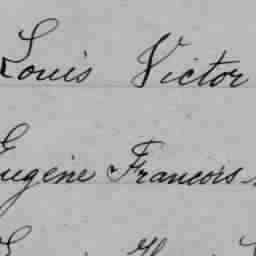 Louis Victor
Eugène Francois